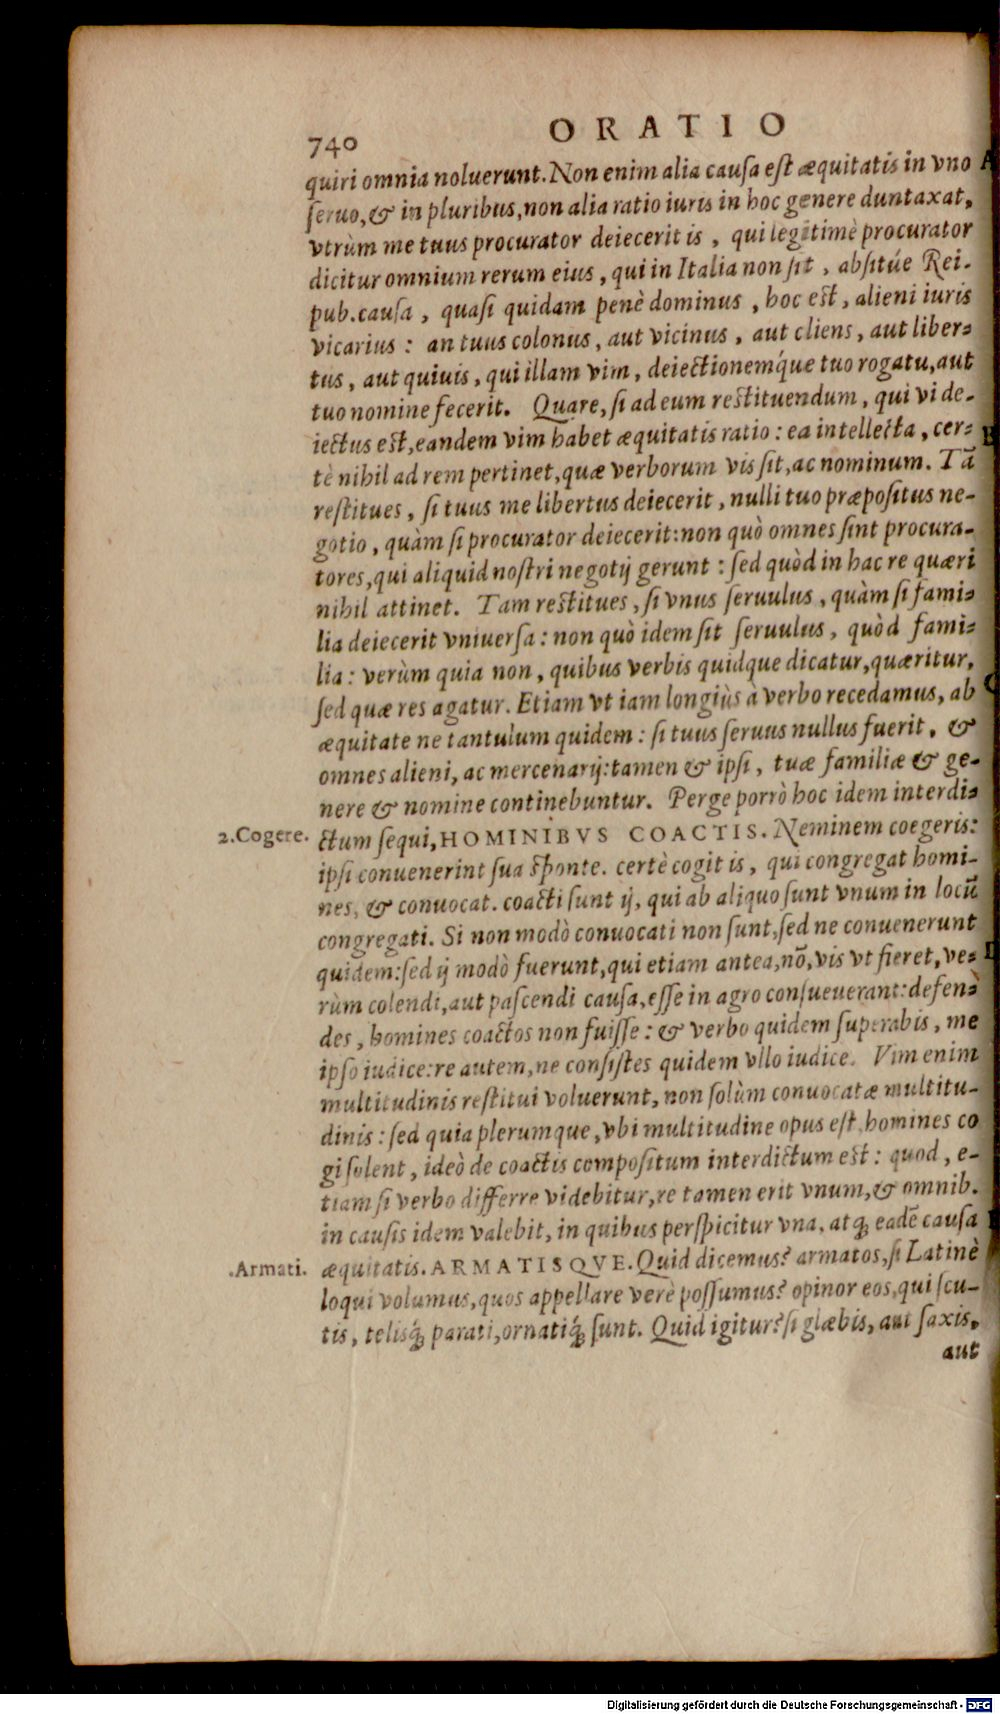 740
ORATIO
quiri omnia noluerunt. Non enim alia cauſa eſt æquitatis in vno A
ſeruo, & in pluribus, non alia ratio iuris in hoc genere duntaxat,
vtrùm me tuus procurator deiecerit is, qui legitimè procurator
dicitur omnium rerum eius, qui in Italia non ſit, abſitúe Rei-
pub. cauſa, quaſi quidam penè dominus, hoc eſt, alieni iuris
vicarius: an tuus colonus, aut vicinus, aut cliens, aut liber-
tus, aut quiuis, qui illam vim, deiectionemq́ue tuo rogatu, aut
tuo nomine fecerit. Quare, ſi ad eum reſtituendum, qui vi de-
iectus eſt, eandem vim habet æquitatis ratio: ea intellecta, cer- B
tè nihil ad rem pertinet, quæ verborum vis ſit, ac nominum. Tā
reſtitues, ſi tuus me libertus deiecerit, nulli tuo præpoſitus ne-
gotio, quàm ſi procurator deiecerit: non quò omnes ſint procura-
tores, qui aliquid noſtri negotij gerunt: ſed quòd in hac re quæri
nihil attinet. Tam reſtitues, ſi vnus ſeruulus, quàm ſi fami-
lia deiecerit vniuerſa: non quò idem ſit ſeruulus, quòd fami-
lia: verùm quia non, quibus verbis quidque dicatur, quæritur,
ſed quæ res agatur. Etiam vt iam longiùs à verbo recedamus, ab C
æquitate ne tantulum quidem: ſi tuus ſeruus nullus fuerit, &
omnes alieni, ac mercenarij: tamen & ipſi, tuæ familiæ & ge-
nere & nomine continebuntur. Perge porrò hoc idem interdi-
2. Cogere. ctum ſequi, HOMINIBVS COACTIS. Neminem coegeris:
ipſi conuenerint ſua ſponte. certè cogit is, qui congregat homi-
nes, & conuocat. coacti ſunt ij, qui ab aliquo ſunt vnum in locū
congregati. Si non modò conuocati non ſunt, ſed ne conuenerunt
quidem: ſed ij modò fuerunt, qui etiam antea, nō, vis vt fieret, ve- D
rùm colendi, aut paſcendi cauſa, eſſe in agro conſueuerant: defen-
des, homines coactos non fuiſſe: & verbo quidem ſuperabis, me
ipſo iudice: re autem, ne conſiſtes quidem vllo iudice. Vim enim
multitudinis reſtitui voluerunt, non ſolùm conuocatæ multitu-
dinis: ſed quia plerumque, vbi multitudine opus eſt, homines co
gi ſolent, ideò de coactis compoſitum interdictum eſt: quod, e-
tiam ſi verbo differre videbitur, re tamen erit vnum, & omnib.
in cauſis idem valebit, in quibus perſpicitur vna, atq; eadē cauſa
.Armati. æquitatis. ARMATISQVE. Quid dicemus? armatos, ſi Latinè
loqui volumus, quos appellare verè poſſumus? opinor eos, qui ſcu-
tis, telisq́; parati, ornatiq́; ſunt. Quid igitur? ſi glæbis, aut ſaxis,
aut
Digitalisierung gefördert durch die Deutsche Forschungsgemeinschaft - DFG